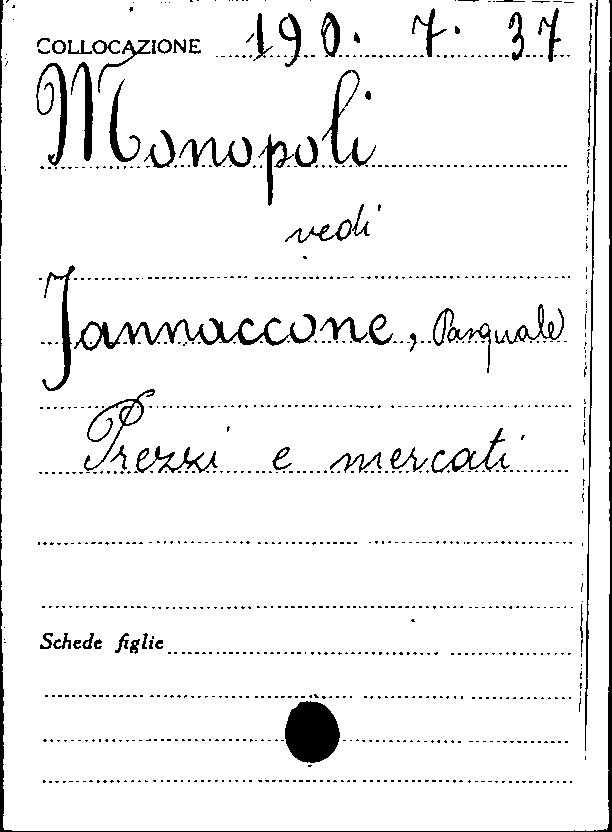 COLLOCAZIONE 190. 7. 37
Monopoli
vedi
Jannaccone, Pasquale
Prezzi e mercati
Schede figlie